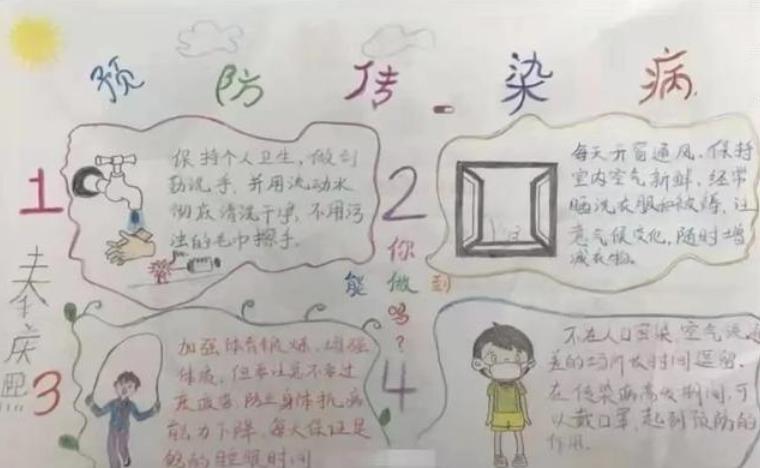 预防传染病
1
保持个人卫生，做到
勤洗手，并用流动水
彻底清洗干净，不用污
浊的毛巾擦手。
2
每天开窗通风，保持
室内空气新鲜，经常
晒洗衣服和被褥，注
意气候变化，随时增
减衣物。
你
能做到
吗？
庆熙
3
加强体育锻炼，增强
体质，但要注意不要过
度疲劳，防止身体抗病
能力下降，每天保证足
够的睡眠时间
4
不在人口密集，空气流
差的场所长时间逗留.
在传染病高发期间，可
以戴口罩，起到预防的
作用.